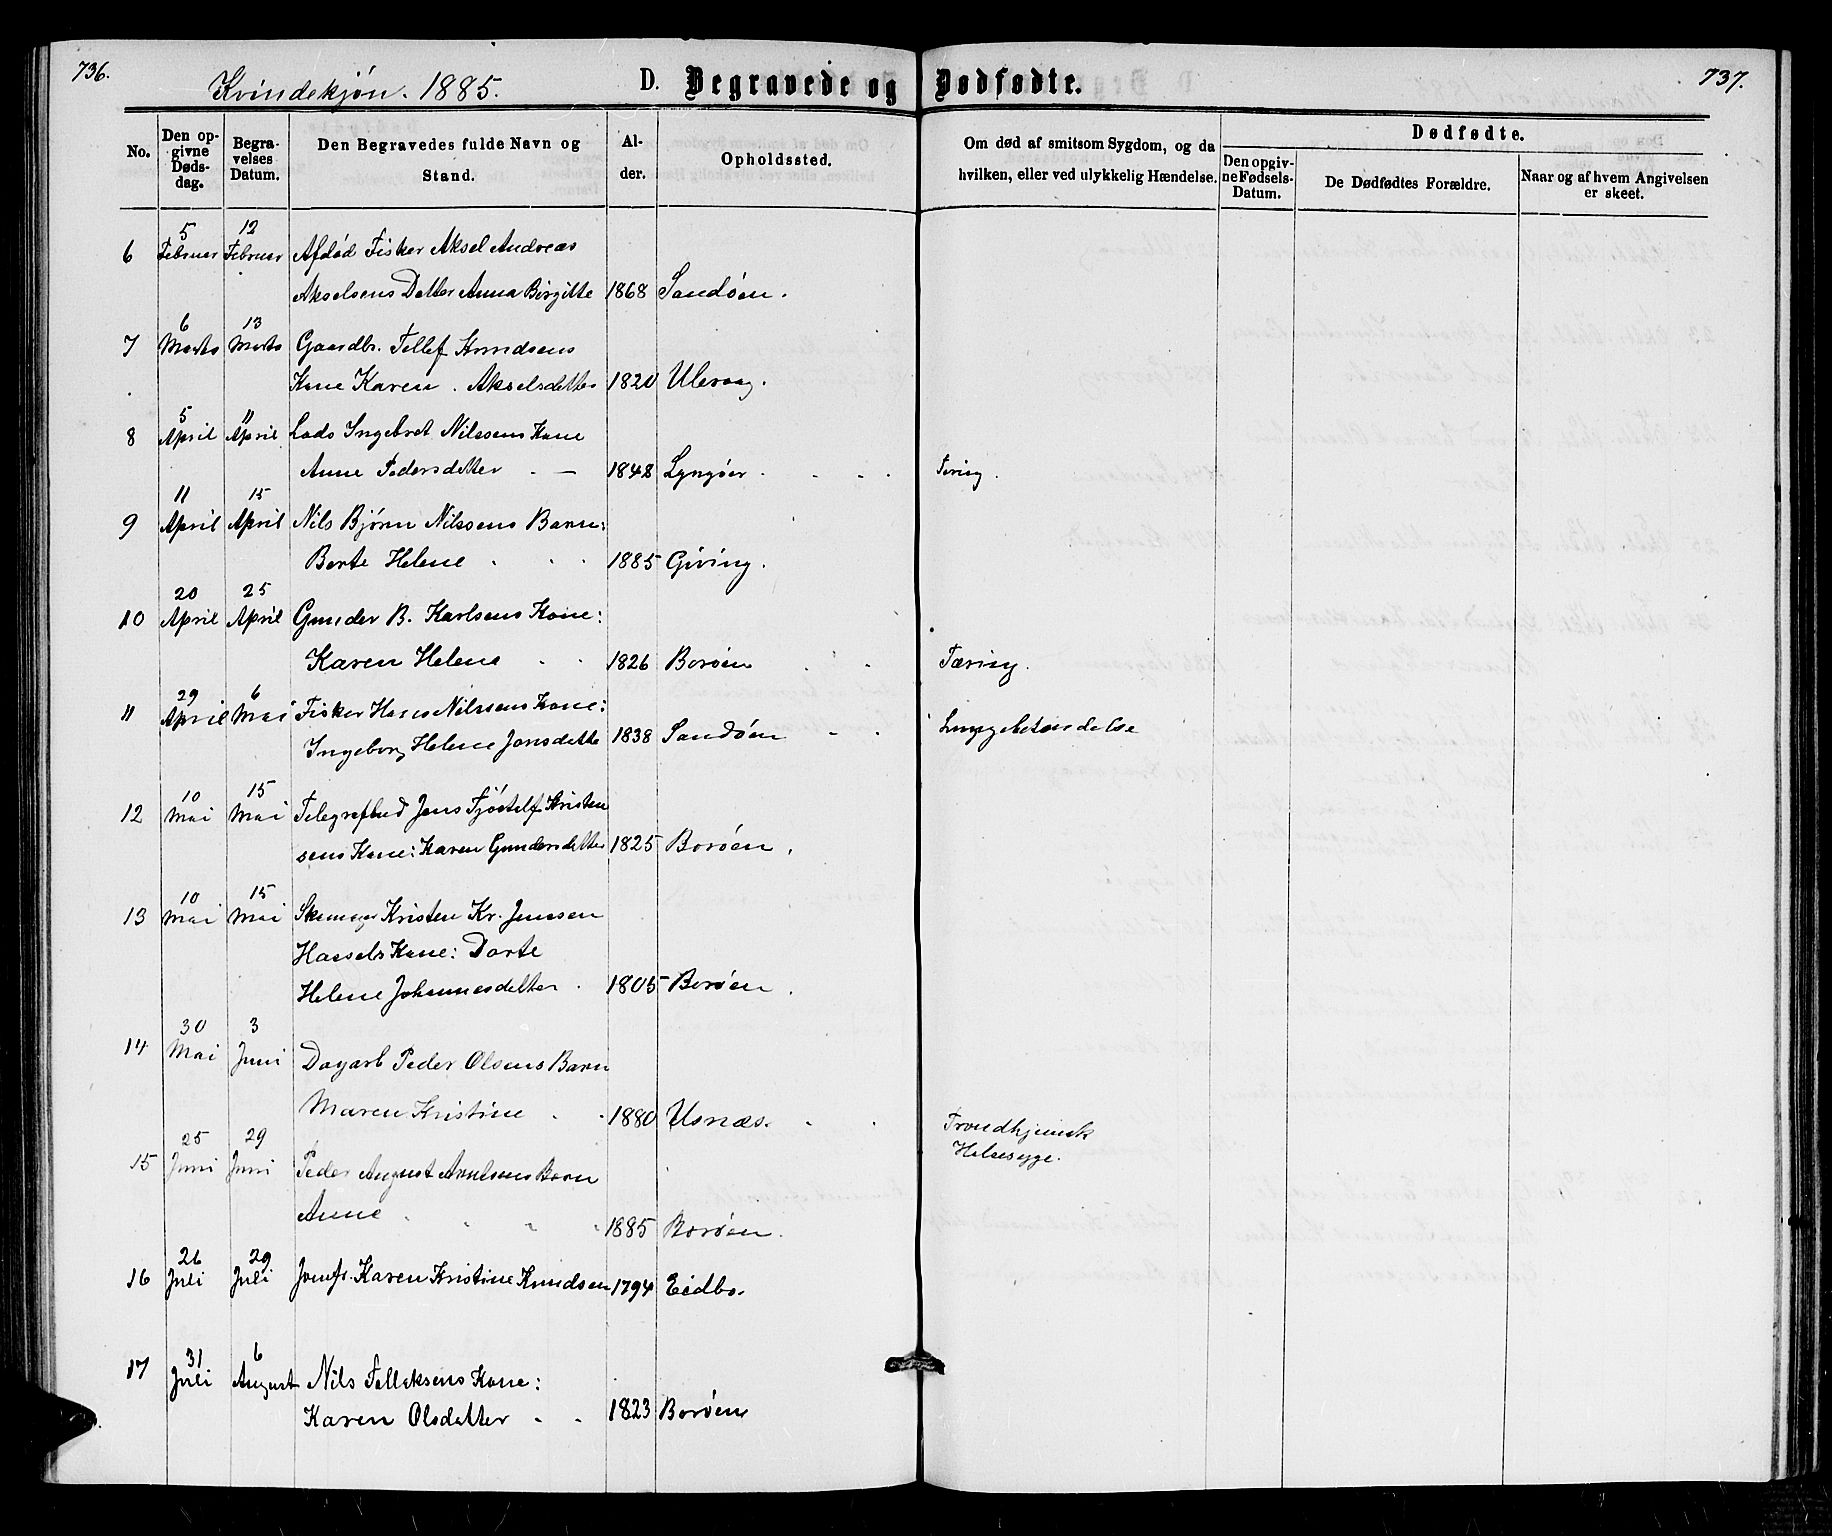 736.
Kvindekjøn. 1885.
D. Begravede og Dødfødte.
737.
No.
Den opgivne Dødsdag.
Begravelses Datum.
Den Begravedes fulde Navn og Stand.
Alder.
Opholdssted.
Om død af smitsom Sygdom, og da hvilken, eller ved ulykkelig Hændelse.
Dødfødte.
Den opgivne Fødsels-Datum.
De Dødfødtes Forældre.
Naar og af hvem Angivelsen er skeet.
6 5 Februar 12 Februar Afdød Fisker Aksel Andreas
Akselsens Datter Anna Birgitte 1868 Sandøen.
7 6 Marts 13 Marts Gaardbr. Tellef Knudsens
Kone Karen Akselsdatter 1820 Ulevaag.
8 5 April 11 April Lods Ingebret Nilssens Kone
Anne Pedersdatter 1848 Lyngøer Tæring.
9 11 April 15 April Nils Bjørn Nilssens Barn:
Berte Helene 1885 Giving.
10 20 April 25 April Gunder B. Karlsens Kone:
Karen Helene 1826 Borøen Tæring.
11 29 April 6 Mai Fisker Hans Nilssens Kone:
Ingeborg Helene Jonsdatte 1838 Sandøen Lungebetændelse
12 10 Mai 15 Mai Telegrafbud Jens Tjøstelf Kristen
sens Kone: Karen Gundersdatter 1825 Borøen.
13 10 Mai 15 Mai Kristen Kr. Jenssen
Hassels Kone: Dorte
Helene Johannesdatter 1805 Borøen.
14 30 Mai 3 Juni Dagarb Peder Olsens Barn
Maren Kristine 1880 Usnæs. Trondhjemsk
15 25 Juni 29 Juni Peder August Arntsens Barn Helsesyge.
Anne 1885 Borøen.
16 26 Juli 29 Juli Jomfr. Karen Kristine Knudsen 1794 Eidbo.
17 31 Juli 6 August Nils Tellefsens Kone:
Karen Olsdatter 1823 Borøen